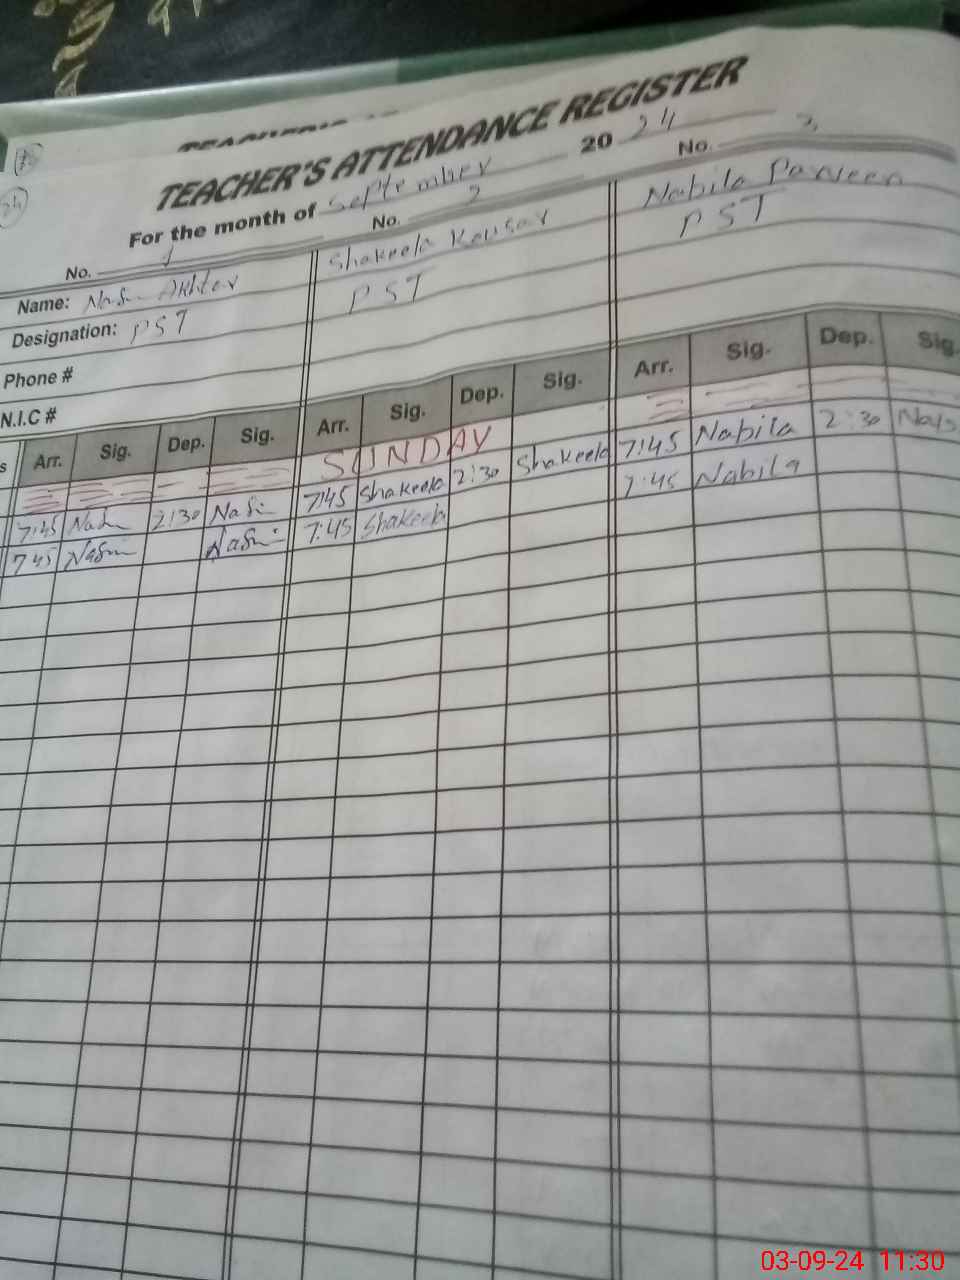 TEACHER'S ATTENDANCE REGISTER
For the month of September 2024
No. 1 No. 2 No. 3
Name: Akhter Shakeela Kousar Nabila Parveen
Designation: PST PST PST
Phone #
N.I.C #
s Arr. Sig. Dep. Sig. Arr. Sig. Dep. Sig. Arr. Sig. Dep. Sig.
SUNDAY
7:45 2:30 7:45 Shakeela 2:30 Shakeela 7:45 Nabila 2:30
7:45 7:45 Shakeela 7:45 Nabila
03-09-24 11:30